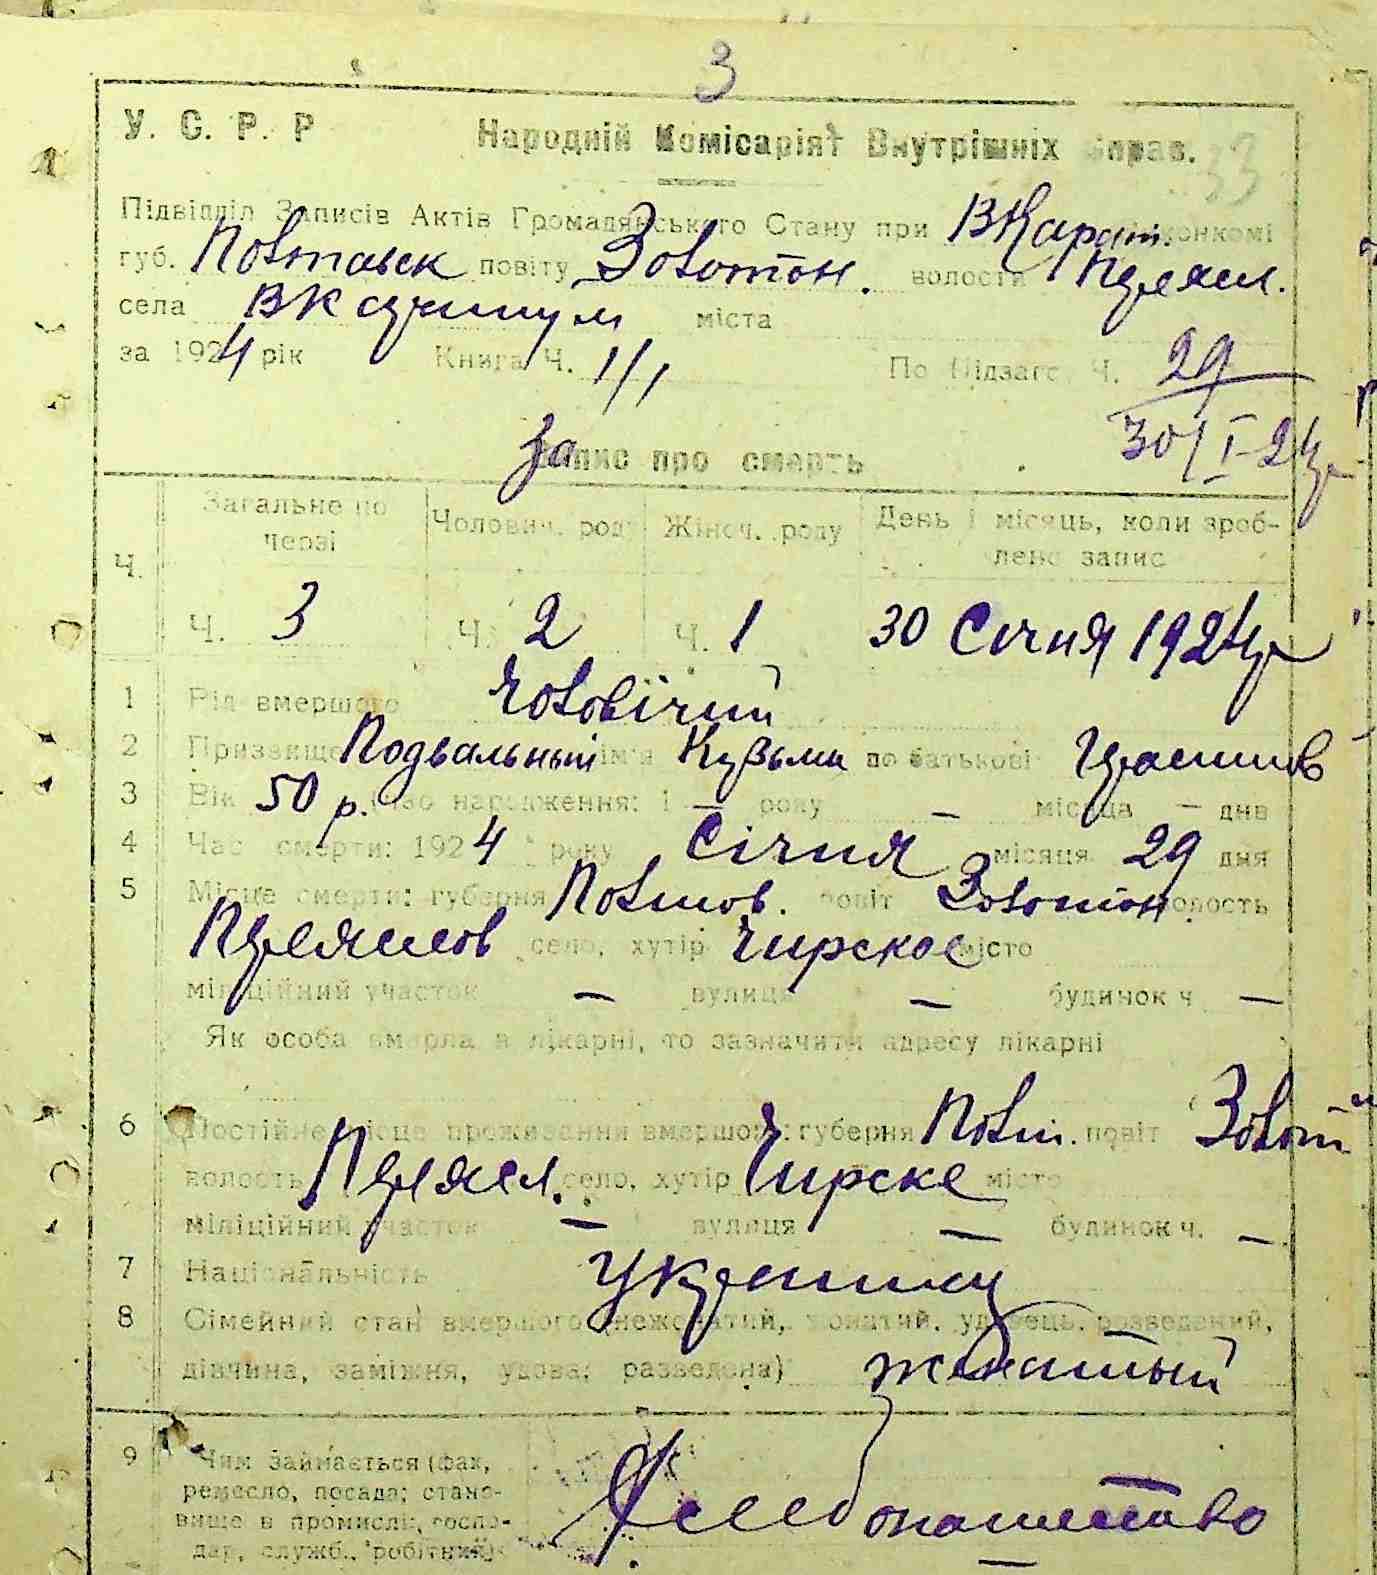 3
У. С. Р. Р Народній Комісаріят Внутрішніх Справ.
33
Підвідділ Записів Актів Громадянського Стану при ВКарат. виконкомі
губ. Полтавск повіту Золотон. волости Переясл.
села міста
за 1924 рік Книга Ч. 1/1 По Підзагс Ч. 29
30/I-24р
Запис про смерть
Ч. Загальне по черзі Чоловіч. роду Жіноч. роду День і місяць, коли зроб-
лено запис
Ч. 3 Ч. 2 Ч. 1 30 Січня 1924р
1 Рід вмершого Чоловічий
2 Призвище Подвальный ім'я Кузьма по батькові
3 Вік 50 р. або народження: 1 — року — місяца — дня
4 Час смерти: 1924 року Січня місяця 29 дня
5 Місце смерти: губерня Полтов. повіт Золотон. волость
Переяслов село, хутір Чирское місто
міліційний участок — вулиця — будинок ч —
Як особа вмерла в лікарні, то зазначити адресу лікарні
6 Постійне місце проживання вмершого: губерня Полт. повіт Золот
волость Переясл. село, хутір Чирске місто
міліційний участок — вулиця — будинок ч. —
7 Національність Украинец
8 Сімейний стан вмершого (нежонатий, жонатий, удовець, розведений,
дівчина, заміжня, удова, разведена) жонатый
9 Чим займається (фах,
ремесло, посада; стано-
вище в промислі, госпо-
дар, служб., робітник) Хлебопашество